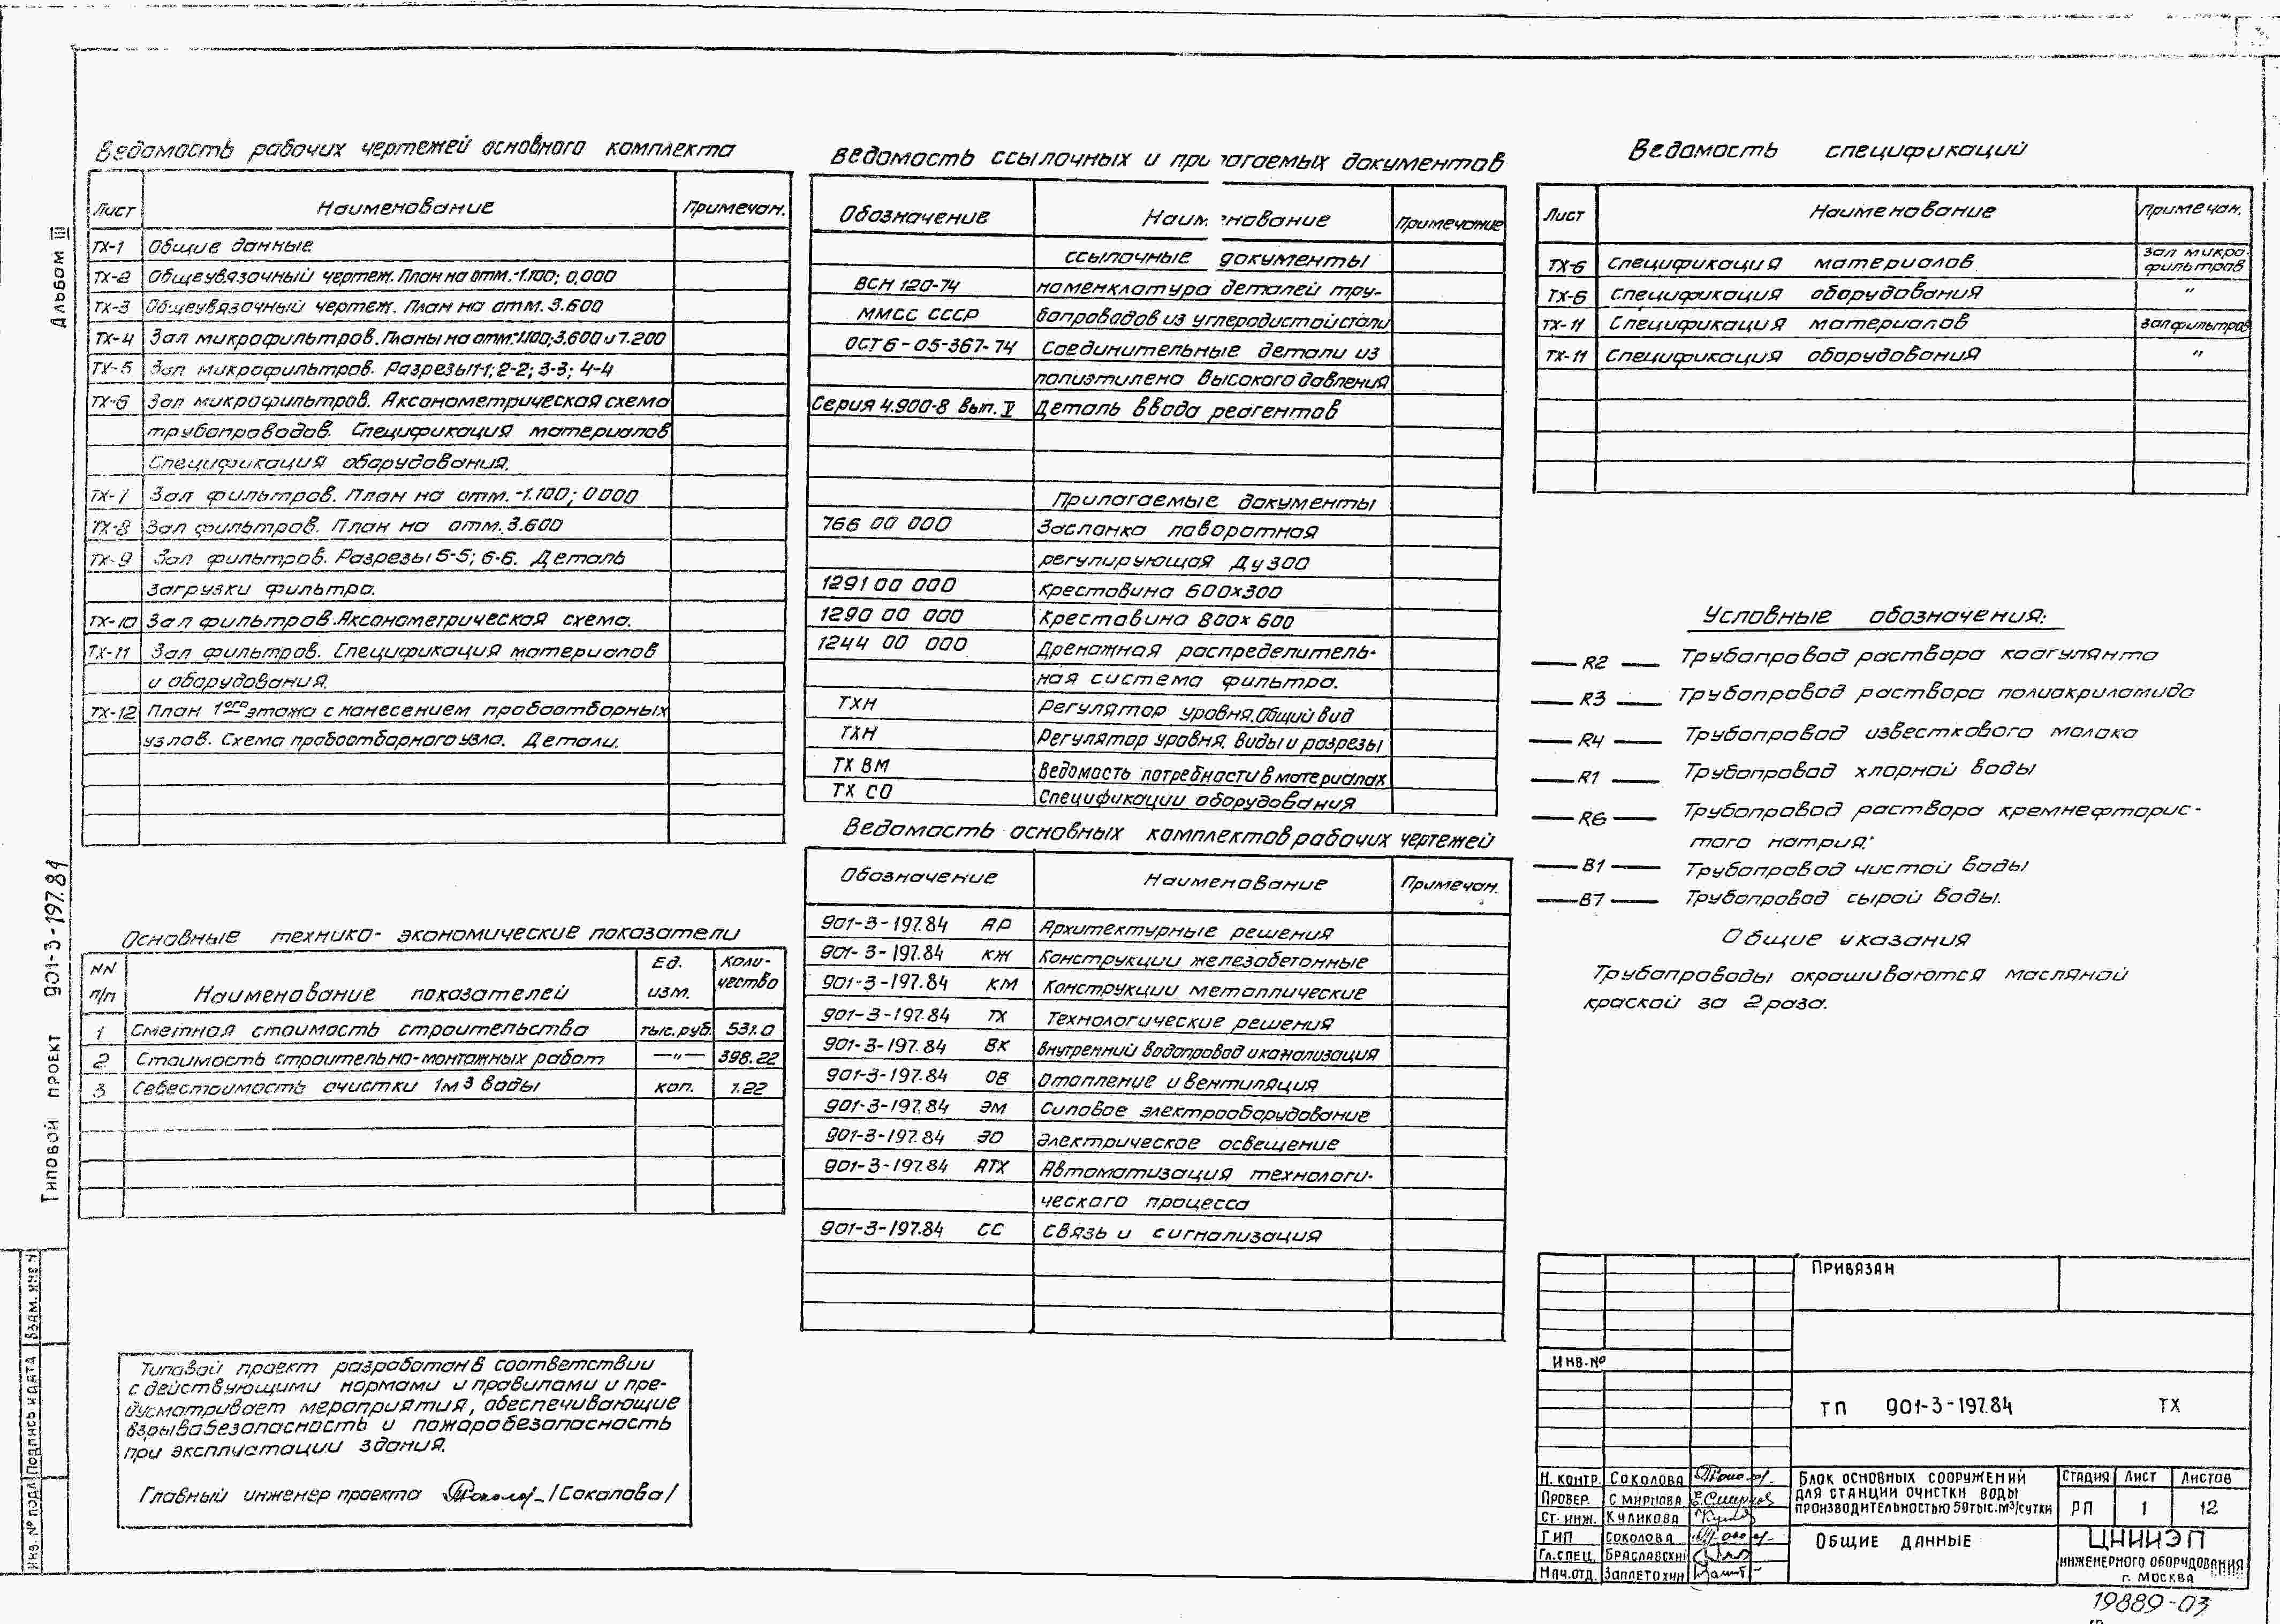 3
Альбом III
Типовой проект 901-3-197.84
Ведомость рабочих чертежей основного комплекта
Лист Наименование Примечан.
ТХ-1 Общие данные
ТХ-2 Общеувязочный чертеж. План на отм.-1.100; 0,000
ТХ-3 Общеувязочный чертеж. План на отм. 3.600
ТХ-4 Зал микрофильтров. Планы на отм.-1.100;3.600 и 7.200
ТХ-5 Зал микрофильтров. Разрезы 1-1; 2-2; 3-3; 4-4
ТХ-6 Зал микрофильтров. Аксонометрическая схема
трубопроводов. Спецификация материалов
Спецификация оборудования.
ТХ-7 Зал фильтров. План на отм. -1.100; 0000
ТХ-8 Зал фильтров. План на отм. 3.600
ТХ-9 Зал фильтров. Разрезы 5-5; 6-6. Деталь
загрузки фильтра.
ТХ-10 Зал фильтров. Аксонометрическая схема.
ТХ-11 Зал фильтров. Спецификация материалов
и оборудования.
ТХ-12 План 1ого этажа с нанесением пробоотборных
узлов. Схема пробоотборного узла. Детали.
Основные технико-экономические показатели
NN п/п Наименование показателей Ед. изм. Количество
1 Сметная стоимость строительства тыс.руб. 531.0
2 Стоимость строительно-монтажных работ —"— 398.22
3 Себестоимость очистки 1м3 воды коп. 1.22
Типовой проект разработан в соответствии
с действующими нормами и правилами и пре-
дусматривает мероприятия, обеспечивающие
взрывобезопасность и пожаробезопасность
при эксплуатации здания.
Главный инженер проекта /Соколова/
Ведомость ссылочных и прилагаемых документов
Обозначение Наименование Примечание
ссылочные документы
ВСН 120-74 номенклатура деталей тру-
ММСС СССР бопроводов из углеродистой стали
ОСТ 6-05-367-74 Соединительные детали из
полиэтилена высокого давления
Серия 4.900-8 вып. V Деталь ввода реагентов
Прилагаемые документы
766 00 000 Заслонка поворотная
регулирующая Ду 300
1291 00 000 Крестовина 600х300
1290 00 000 Крестовина 800х600
1244 00 000 Дренажная распределитель-
ная система фильтра.
ТХН Регулятор уровня. Общий вид
ТХН Регулятор уровня. Виды и разрезы
ТХ ВМ Ведомость потребности в материалах
ТХ СО Спецификации оборудования
Ведомость основных комплектов рабочих чертежей
Обозначение Наименование Примечан.
901-3-197.84 АР Архитектурные решения
901-3-197.84 КЖ Конструкции железобетонные
901-3-197.84 КМ Конструкции металлические
901-3-197.84 ТХ Технологические решения
901-3-197.84 ВК Внутренний водопровод и канализация
901-3-197.84 ОВ Отопление и вентиляция
901-3-197.84 ЭМ Силовое электрооборудование
901-3-197.84 ЭО Электрическое освещение
901-3-197.84 АТХ Автоматизация технологи-
ческого процесса
901-3-197.84 СС Связь и сигнализация
Ведомость спецификаций
Лист Наименование Примечан.
ТХ-6 Спецификация материалов зал микро-
фильтров
ТХ-6 Спецификация оборудования "
ТХ-11 Спецификация материалов зал фильтров
ТХ-11 Спецификация оборудования "
Условные обозначения:
R2 Трубопровод раствора коагулянта
R3 Трубопровод раствора полиакриламида
R4 Трубопровод известкового молока
R1 Трубопровод хлорной воды
R6 Трубопровод раствора кремнефторис-
того натрия.
В1 Трубопровод чистой воды
В7 Трубопровод сырой воды.
Общие указания
Трубопроводы окрашиваются масляной
краской за 2 раза.
Привязан
Инв.№
ТП 901-3-197.84 ТХ
Н. контр. Соколова
Провер. Смирнова
Ст. инж. Куликова
ГИП Соколова
Гл.спец. Браславский
Нач.отд. Заплетохин
Блок основных сооружений
для станции очистки воды
производительностью 50 тыс.м3/сутки
Стадия Лист Листов
РП 1 12
Общие данные
ЦНИИЭП
инженерного оборудования
г. Москва
19889-03
Инв. № подл. Подпись и дата Взам. инв. №